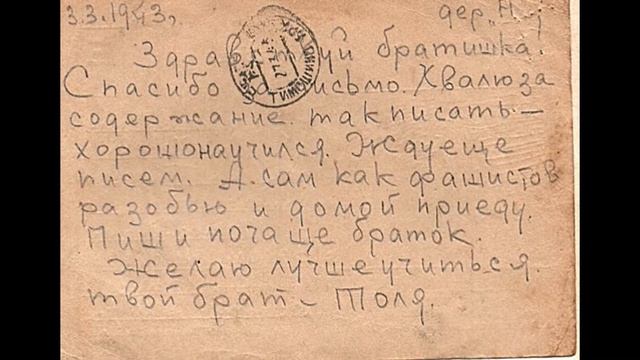 3.3.1943г. дер. "Н."
Здравствуй братишка.
Спасибо за письмо. Хвалю за
содержание. так писать —
хорошо научился. Жду еще
писем. А сам как фашистов
разобью и домой приеду.
Пиши почаще браток.
Желаю лучше учиться.
твой брат — Толя.